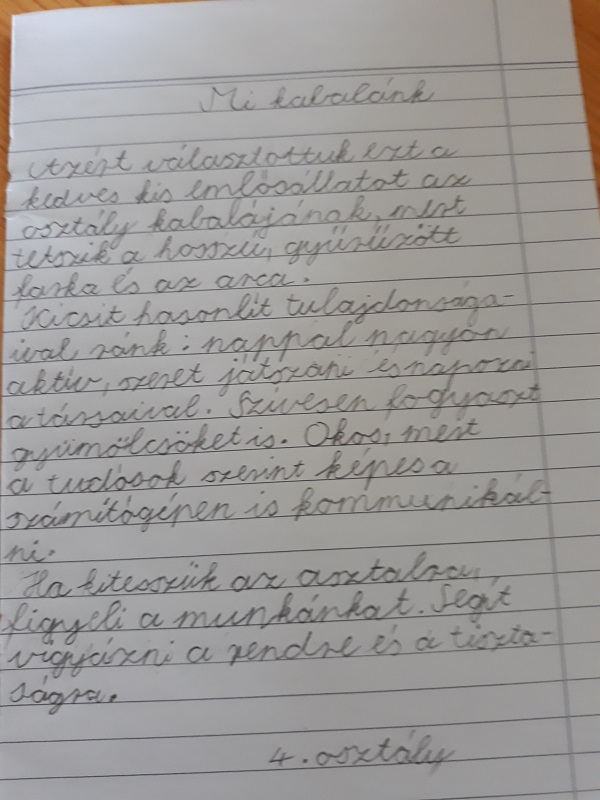 Mi kabalánk
Azért választottuk ezt a
kedves kis emlősállatot az
osztály kabalájának, mert
tetszik a hosszú, gyűrűzött
farka és az arca.
Kicsit hasonlít tulajdonsága-
ival ránk: nappal nagyon
aktív, szeret játszani és napozni
a társaival. Szívesen fogyaszt
gyümölcsöket is. Okos, mert
a tudósok szerint képes a
számítógépen is kommunikál-
ni.
Ha kitesszük az asztalra,
figyeli a munkánkat. Segít
vigyázni a rendre és a tiszta-
ságra.
4. osztály